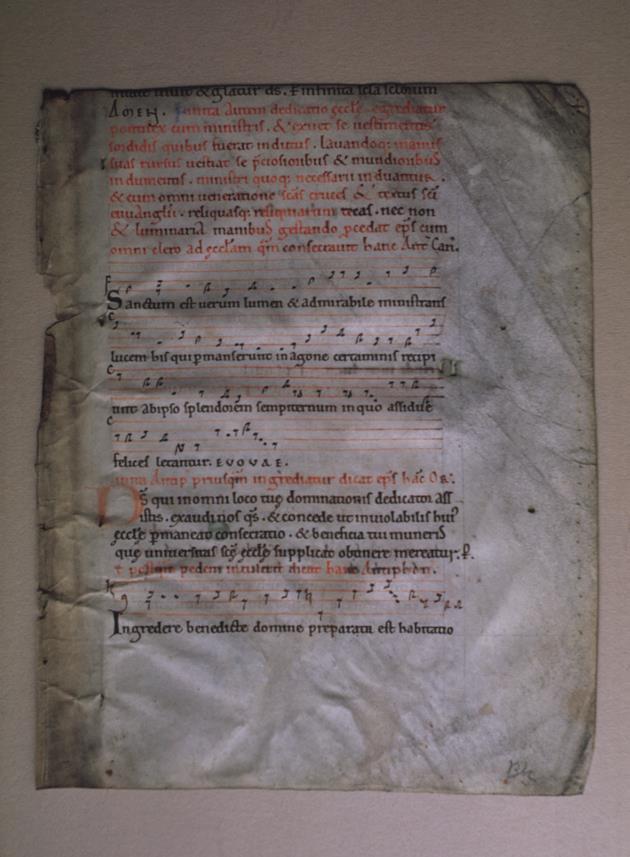 uiuit & głatur ds. P infinita scła scłorum
Amen. Finita autem dedicatio ecclę egrediatur
pontifex cum ministris. & exuet se uestimentis
sordidis quibus fuerat indutus. lauandoq; manus
suas rursus uestiat se p̄ciosioribus & mundioribus
indumentis. ministri quoq; necessarii induantur.
& cum omni ueneratione scās cruces & textus sci
euuanglii. reliquasq; reliquiarum tecas. nec non
& luminaria manibus gestando pcedat ep̄s cum
omni clero ad ecclam q̄m consecrauit hanc Ant̄ Can̄.
Sanctum est uerum lumen & admirabile ministrans
lucem his qui pmanserunt in agone certaminis recipi
unt ab ipso splendorem sempiternum in quo assidue
felices letantur. E V O V A E.
Antip̄ priusq̄m ingrediatur dicat ep̄s hāc Or̄.
Ds̄ qui in omni loco tuę dominationis dedicator ass
istis. exaudi nos q̄s. & concede ut inuiolabilis hui'
ecclę pmaneat consecratio. & beneficia tui muneris
quę uniuersitas scę ecclę supplicat obtinere mereatur. P.
pedem intulerit dicat hanc Antiphōn.
Ingredere benedicte domine preparata est habitatio